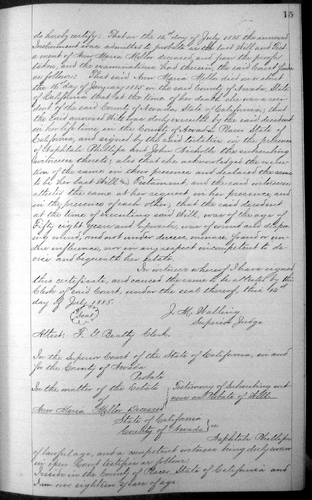 15
do hereby certify: That on the 12th day of July 1885 the annexed
Instrument was admitted to probate as the last Will and Test
ament of Ann Maria Miller deceased, and from the proofs
taken and the examinations had therein, the said Court finds
as follows: That said Ann Maria Miller died on or about
the 16th day of January 1885 in the said County of Nevada State of
California that at the time of her death she was a res
ident of the said County of Nevada, State of California; that
the said annexed Will was duly executed by the said decedent
in her lifetime in the County of Nevada State of
California, and signed by the said testatrix in the presence
of Jephthah Phillips and John Nicholls the subscribing
witnesses thereto; also that she acknowledged the execu
tion of the same in their presence and declared the same
to be her last Will & Testament, and the said witnesses
attest the same at her request in her presence, and
in the presence of each other; that the said decedent
at the time of executing said Will, was of the age of
Fifty eight years and upwards, was of sound and dispo
sing mind, and not under duress, menace, fraud or un
due influence, nor in any respect incompetent to de
vise and bequeath her estate.
In witness whereof I have signed
this certificate, and caused the same to be attested by the
Clerk of said Court, under the seal thereof this
day of July 1885
Seal
J. M. Walling
Superior Judge
Attest: F. G. Beatty Clerk.
In the Superior Court of the State of California, in and
for the County of Nevada
Probate
In the matter of the Estate
of
Ann Maria Miller Deceased
Testimony of Subscribing wit
ness on Probate of Will
State of California
County of Nevada ss
Jephthah Phillips
of lawful age, and a competent witness being duly sworn
in open Court testifies as follows
I reside in the County of State of California and
I am over eighteen years of age